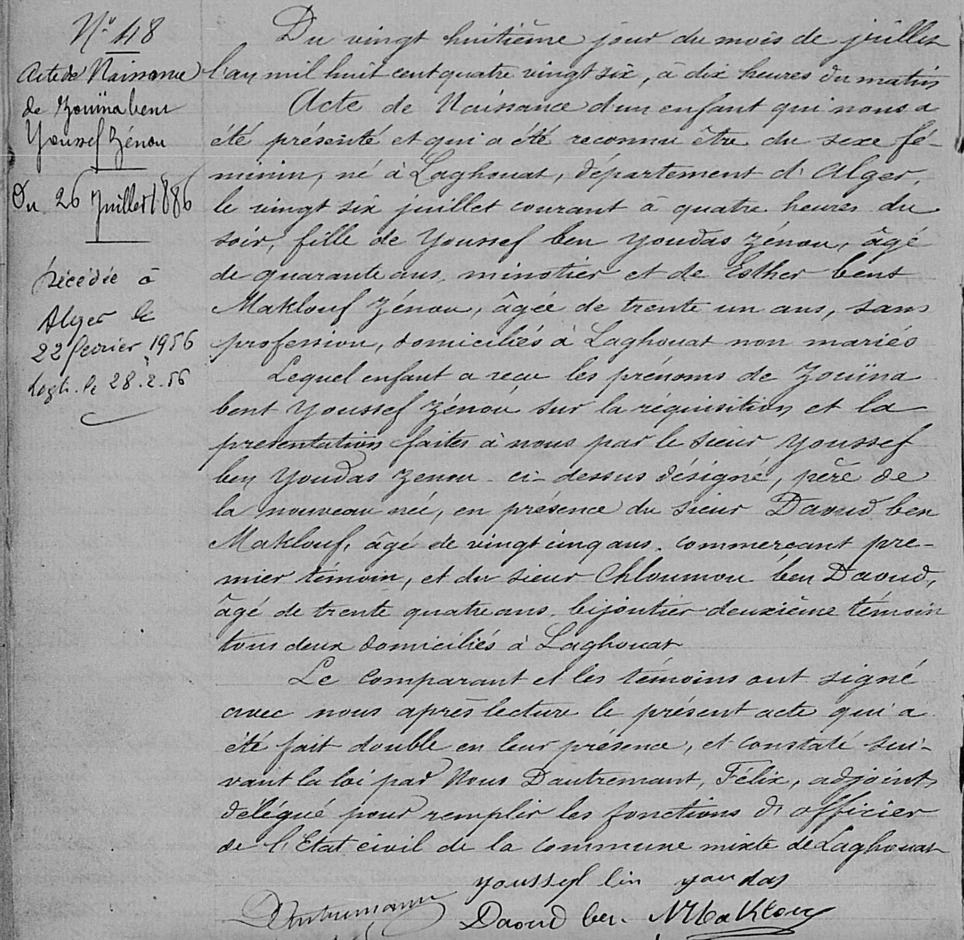 N° 48
Acte de Naissance
de Zouïna bent
Youssef Zénou
Du 26 Juillet 1886
Décédée à
Alger le
22 février 1956
le 28.2.56
Du vingt huitième jour du mois de juillet
l'an mil huit cent quatre vingt six, à dix heures du matin
Acte de Naissance d'un enfant qui nous a
été présenté et qui a été reconnu être du sexe fé-
minin, né à Laghouat, département d'Alger,
le vingt six juillet courant à quatre heures du
soir, fille de Youssef ben Youdas Zénou, âgé
de quarante ans, minotier et de Esther bent
Maklouf Zénou, âgée de trente un ans, sans
profession, domiciliés à Laghouat non mariés
Lequel enfant a reçu les prénoms de Zouïna
bent Youssef Zénou sur la réquisition et la
présentation faites à nous par le sieur Youssef
ben Youdas Zenou ci-dessus désigné, père de
la nouveau née, en présence du sieur Daoud ben
Maklouf, âgé de vingt cinq ans, commerçant pre-
mier témoin, et du sieur Chloumou ben Daoud,
âgé de trente quatre ans, bijoutier deuxième témoin
tous deux domiciliés à Laghouat
Le comparant et les témoins ont signé
avec nous après lecture le présent acte qui a
été fait double en leur présence, et constaté sui-
vant la loi par Nous Dautremant, Félix, adjoint,
délégué pour remplir les fonctions d'officier
de l'Etat civil de la commune mixte de Laghouat
youssef bin youdas
Dautremant Daoud ben Maklouf